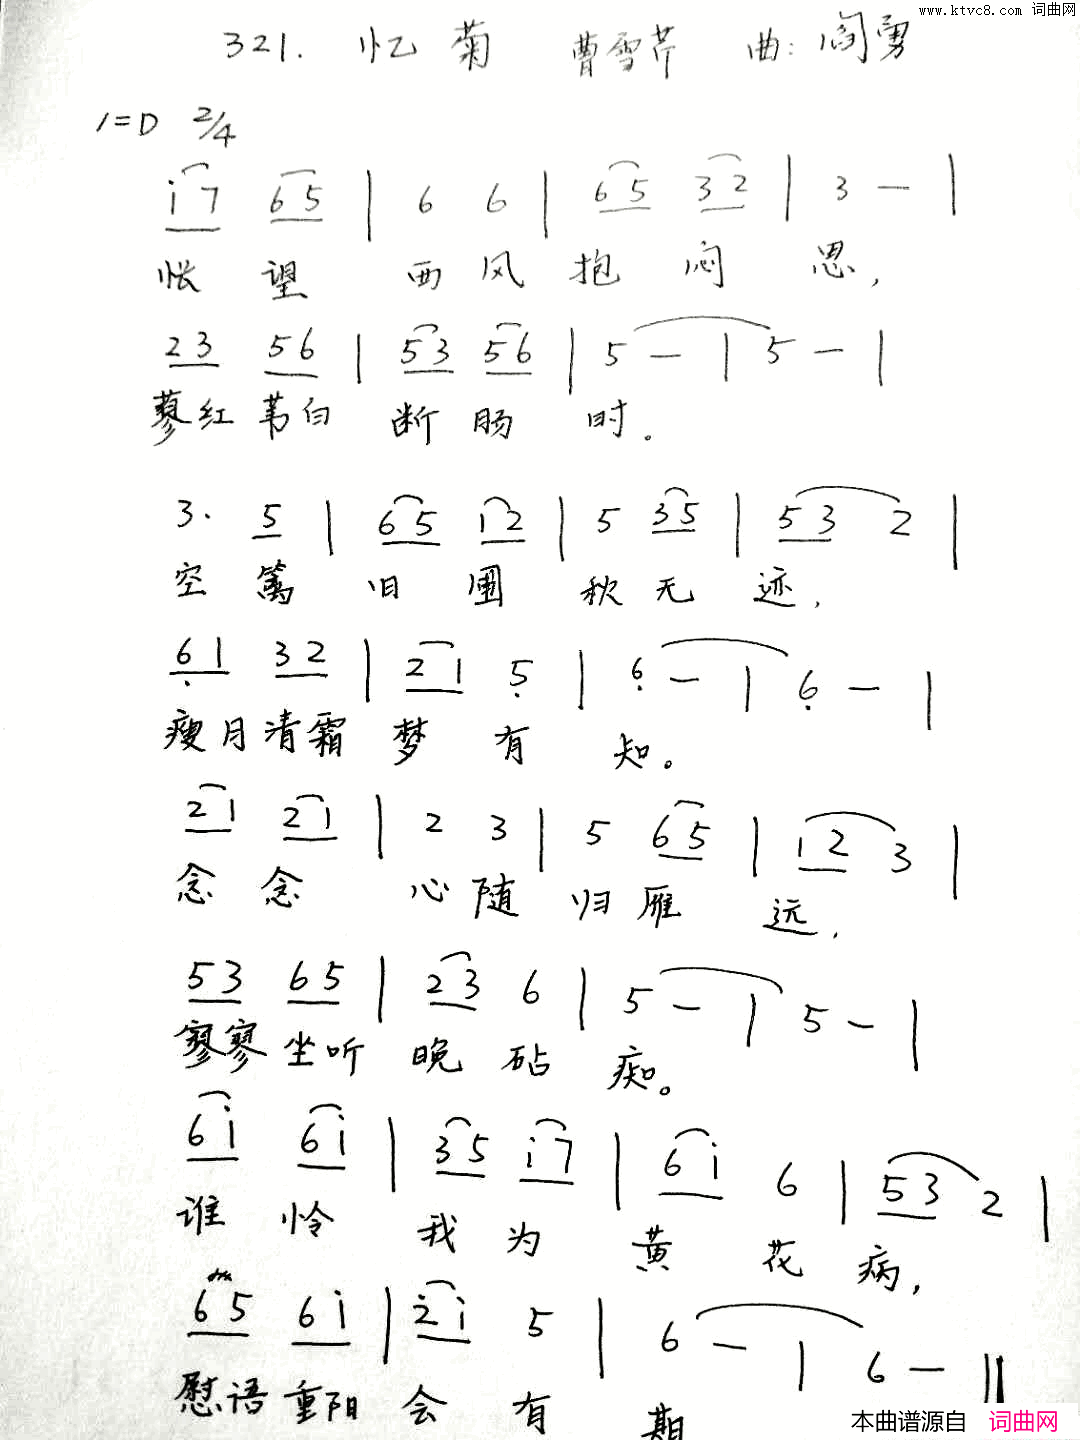 www.ktvc8.com 词曲网
321. 忆菊 曹雪芹 曲: 阎勇
1=D 2/4
i7 65 | 6 6 | 65 32 | 3 — |
怅 望 西 风 抱 闷 思,
23 56 | 53 56 | 5 — | 5 — |
蓼红苇白 断 肠 时。
3. 5 | 65 i2 | 5 35 | 53 2 |
空 篱 旧 圃 秋 无 迹,
61 32 | 21 5 | 6 — | 6 — |
瘦月清霜 梦 有 知。
21 21 | 2 3 | 5 65 | 12 3 |
念 念 心 随 归 雁 远,
53 65 | 23 6 | 5 — | 5 — |
寥寥坐听 晚 砧 痴。
6i 6i | 35 i7 | 6i 6 | 53 2 |
谁 怜 我 为 黄 花 病,
65 6i | 2i 5 | 6 — | 6 — ‖
慰语重阳 会 有 期
本曲谱源自 词曲网